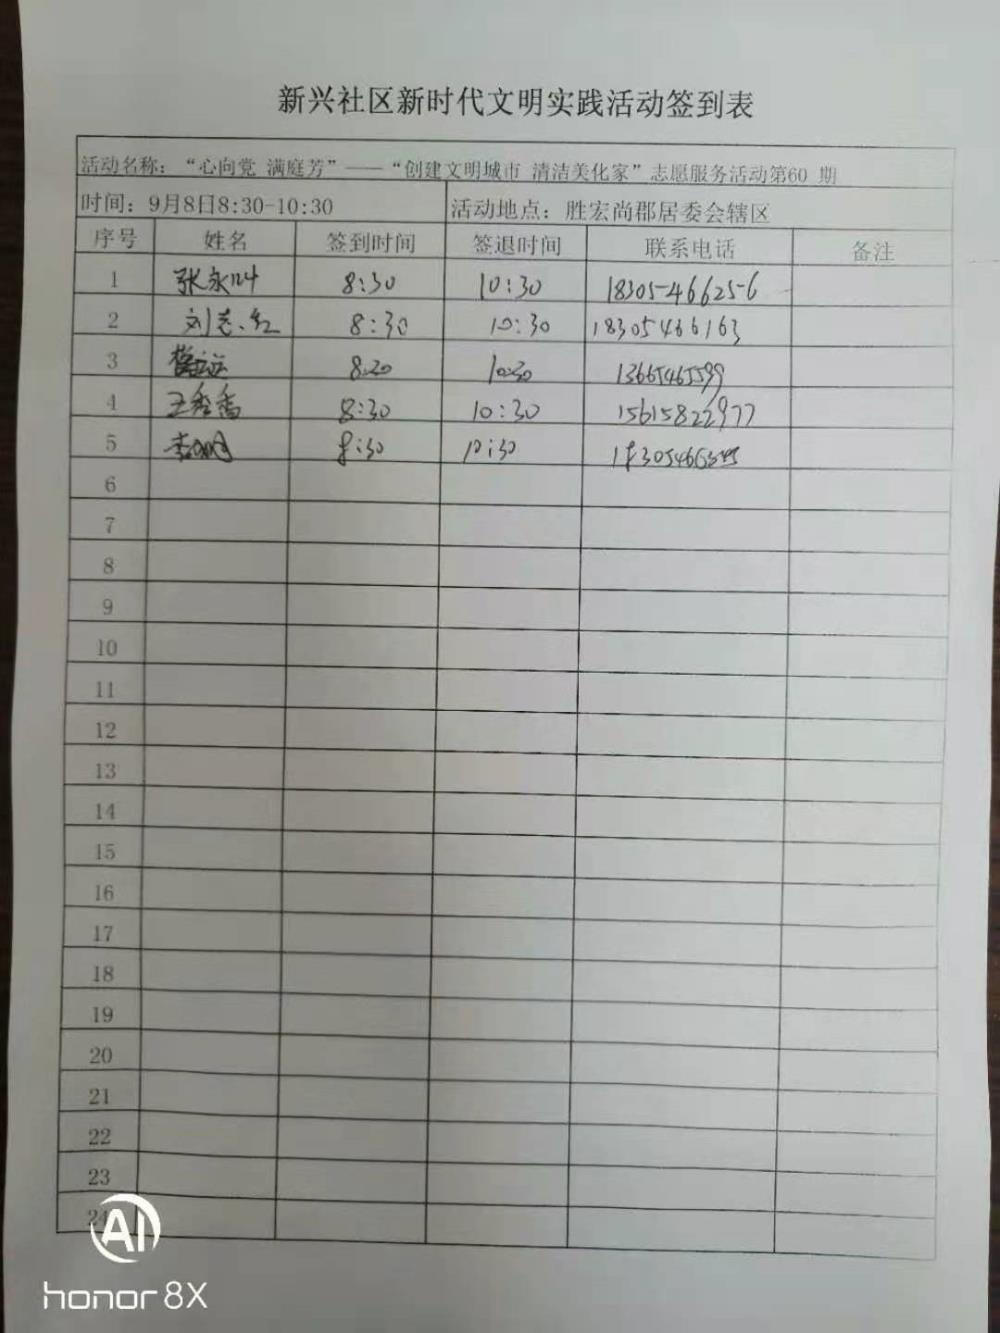 新兴社区新时代文明实践活动签到表
活动名称：“心向党 满庭芳”——“创建文明城市 清洁美化家”志愿服务活动第60 期
时间：9月8日8:30-10:30 活动地点：胜宏尚郡居委会辖区
序号 姓名 签到时间 签退时间 联系电话 备注
1 张永叶 8:30 10:30 18305466256
2 刘志红 8:30 10:30 18305466163
3 8:30 10:30 13665465599
4 王秀香 8:30 10:30 15615822977
5 8:30 10:30
6
7
8
9
10
11
12
13
14
15
16
17
18
19
20
21
22
23
24
AI
honor 8X